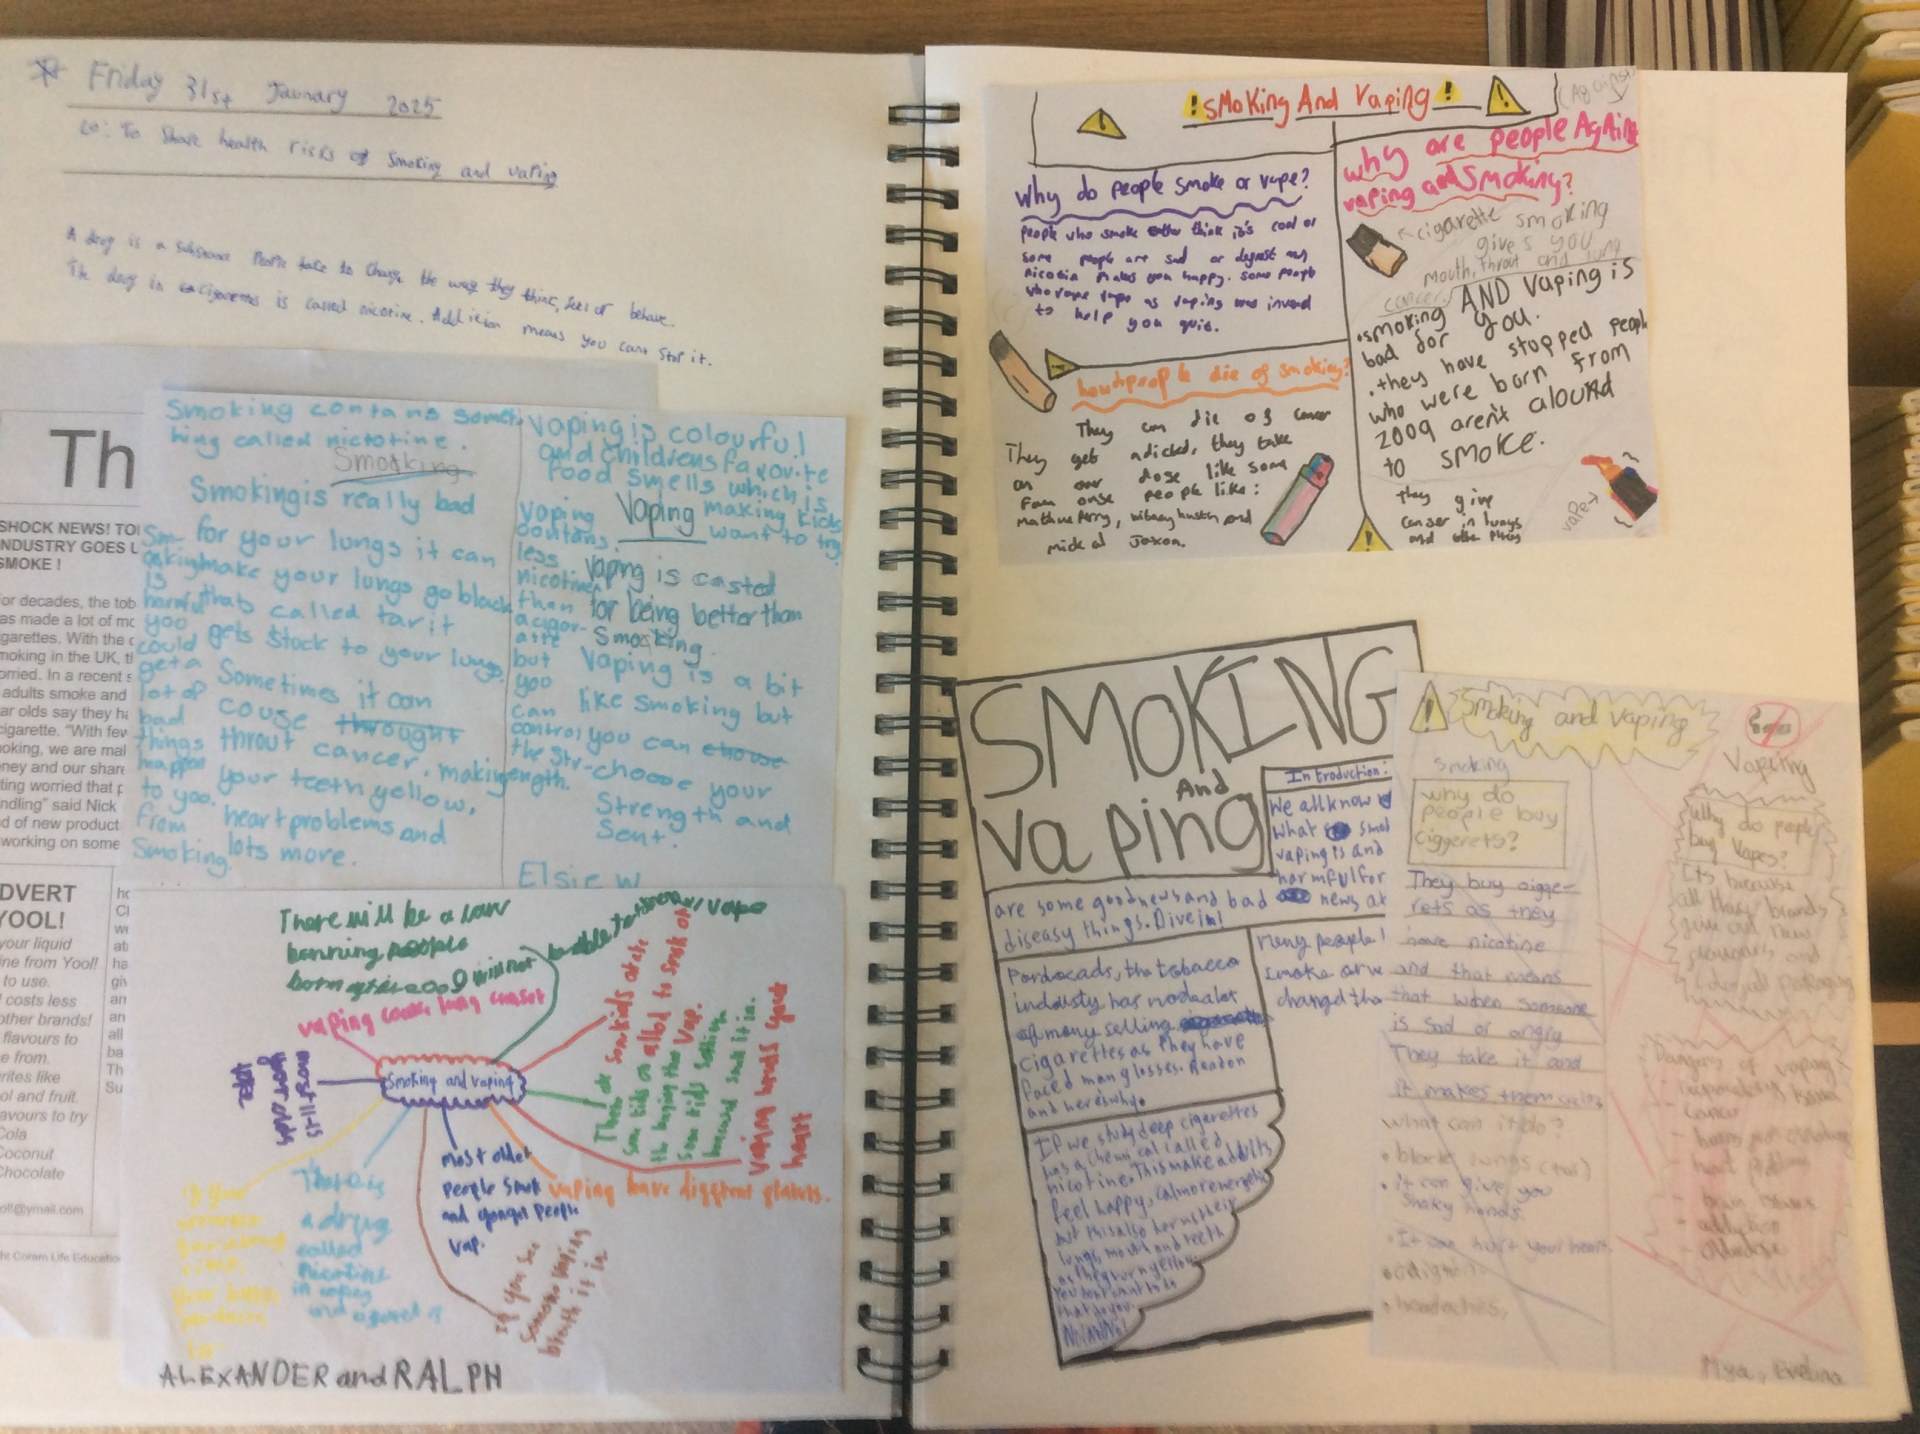 Friday 31st January 2025
LO: To share health risks of smoking and vaping
A drug is a substance people take to change the way they think, feel or behave.
The drug in cigarettes is called nicotine. Addiction means you cant stop it.
Th
SHOCK NEWS! TO
NDUSTRY GOES U
SMOKE !
or decades, the tob
as made a lot of mo
garettes. With the
moking in the UK, t
orried. In a recent s
adults smoke and
ar olds say they ha
cigarette. "With few
oking, we are mal
ney and our share
ting worried that p
ndling" said Nick
d of new product
working on some
DVERT
YOOL!
your liquid
ine from Yool!
to use.
costs less
other brands!
flavours to
e from.
rites like
ol and fruit.
avours to try
Cola
Coconut
Chocolate
ol!@ymail.com
ht Coram Life Educatio
Smoking contans somet
hing called nictotine.
Smoking
Smoking is really bad
for your lungs it can
make your lungs go black
thats called tar it
gets stuck to your lungs.
Sometimes it can
couse throught
throut cancer, making
your teeth yellow,
heart problems and
lots more.
Smoking
is
harmful
you
could
get a
lot of
bad
things
happen
to you.
From
Smoking.
Vaping is colourful
and childrens favorite
food smells which is
making kids
want to try.
Vaping
Vaping
contans
less
nicotine
than
a cigar-
atte
but
you
can
control
the str-
ength.
Vaping is casted
for being better than
Smoking.
Vaping is a bit
like smoking but
you can chouse
chooose your
Strength and
Sent.
Elsie W
There will be a law
banning people
born after 2009 will not be able to smoke / vape
vaping cause lung canser
Smoking and vaping
most older
people smok
and yonger people
vap.
vaping have different flavurs.
vaping herds your
heart
There is
a drug
called
nicotine
in vapes
and
if you see
someone vaping
breath it in
ALEXANDER and RALPH
! Smoking And Vaping !
(Against)
Why do people smoke or vape?
people who smoke think it's cool or
some people are sad or
nicotin makes you happy. some people
who vape vape as vaping was invend
to help you quit.
why are people Against
vaping and smoking?
cigarette smoking
gives you
mouth, throut and lung
cancer.
• smoking AND vaping is
bad for you.
• they have stopped people
who were born from
2009 aren't aloud
to smoke.
They give
canser in lungs
and other places
vape
how people die of smoking?
They can die of cancer
They get adicted, they take
an over dose like some
people like:
and
mical Jaxon.
SMOKING
And
vaping
Introduction:
We all know
what smok
vaping is and
harmful for
are some good news and bad news at
diseasy things. Dive in!
For decads, the tobacco
industy has
of mony selling
cigarettes as they have
faced many losses. Read on
and here's why.
meny people
smoke or v
changed tha
If we study deep cigarettes
has a chemical called
nicotine. This make adults
feel happy, calm or energetic
but this also harms their
lungs, mouth and teeth
as they turn yellow.
You dont want to do
that do you.
Smoking and vaping
smoking
why do
people buy
ciggerets?
They buy cigge-
rets as they
have nicotine
and that means
that when someone
is sad or angry
They take it and
it makes them
what can it do?
• black lungs (tar)
• it can give you
shaky hands.
• It can hurt your heart.
• headaches.
Vapeing
Why do people
buy vapes?
Its because
all these brands
give out new
flavours, and
colorfull packaging
Dangers of vaping
- cancer
- heart problems
- addiction
Mya, Evelina